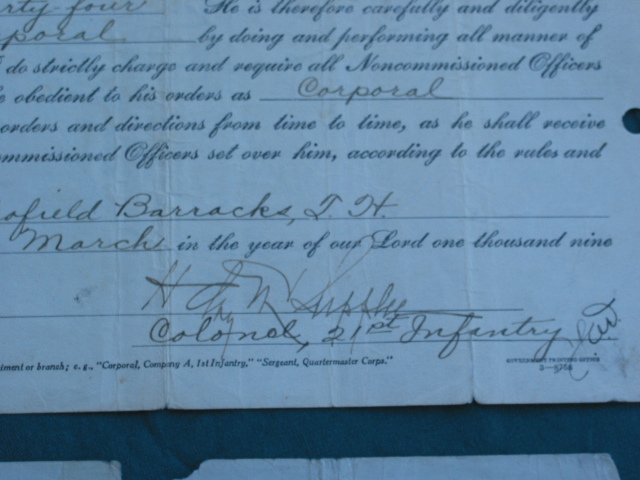 rty-four He is therefore carefully and diligently
poral by doing and performing all manner of
do strictly charge and require all Noncommissioned Officers
e obedient to his orders as Corporal
orders and directions from time to time, as he shall receive
mmissioned Officers set over him, according to the rules and
ofield Barracks, T. H.
March in the year of our Lord one thousand nine
Colonel, 21st Infantry
iment or branch; e. g., "Corporal, Company A, 1st Infantry," "Sergeant, Quartermaster Corps."
GOVERNMENT PRINTING OFFICE